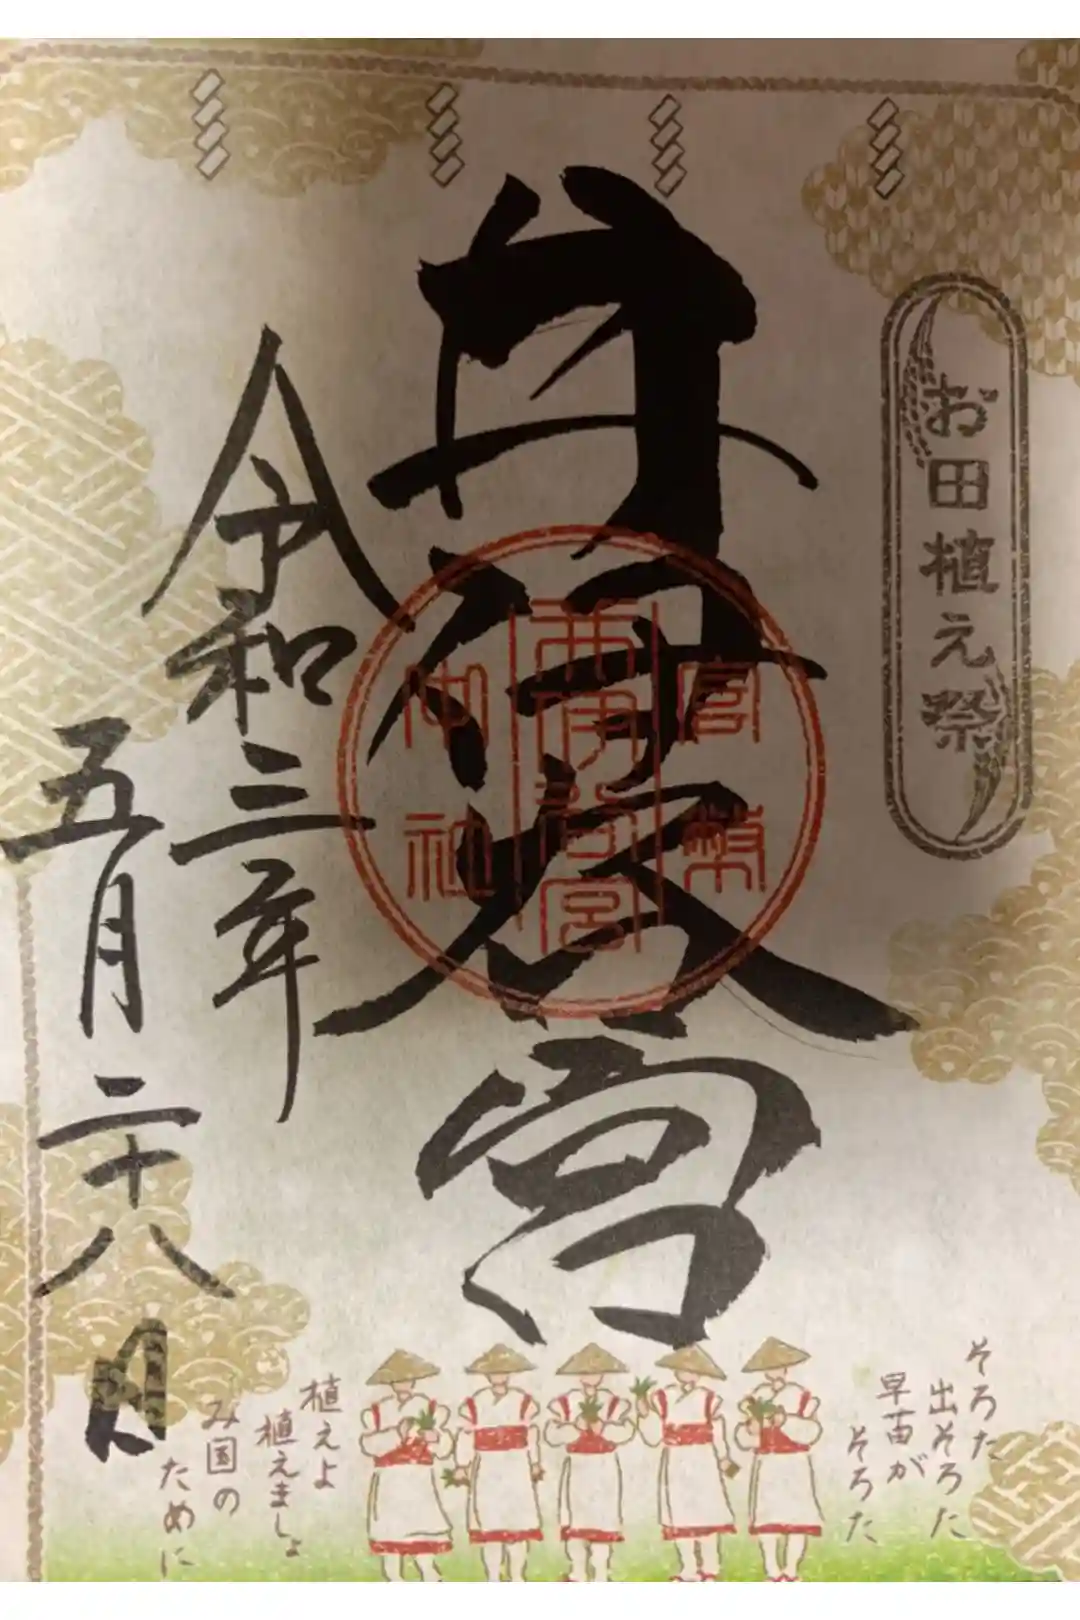 お田植え祭
井伊谷宮
官幣
井伊谷宮
中社
令和三年
五月二十八日
そろた
出そろた
早苗が
そろた
植えよ
植えましょ
み国の
ために